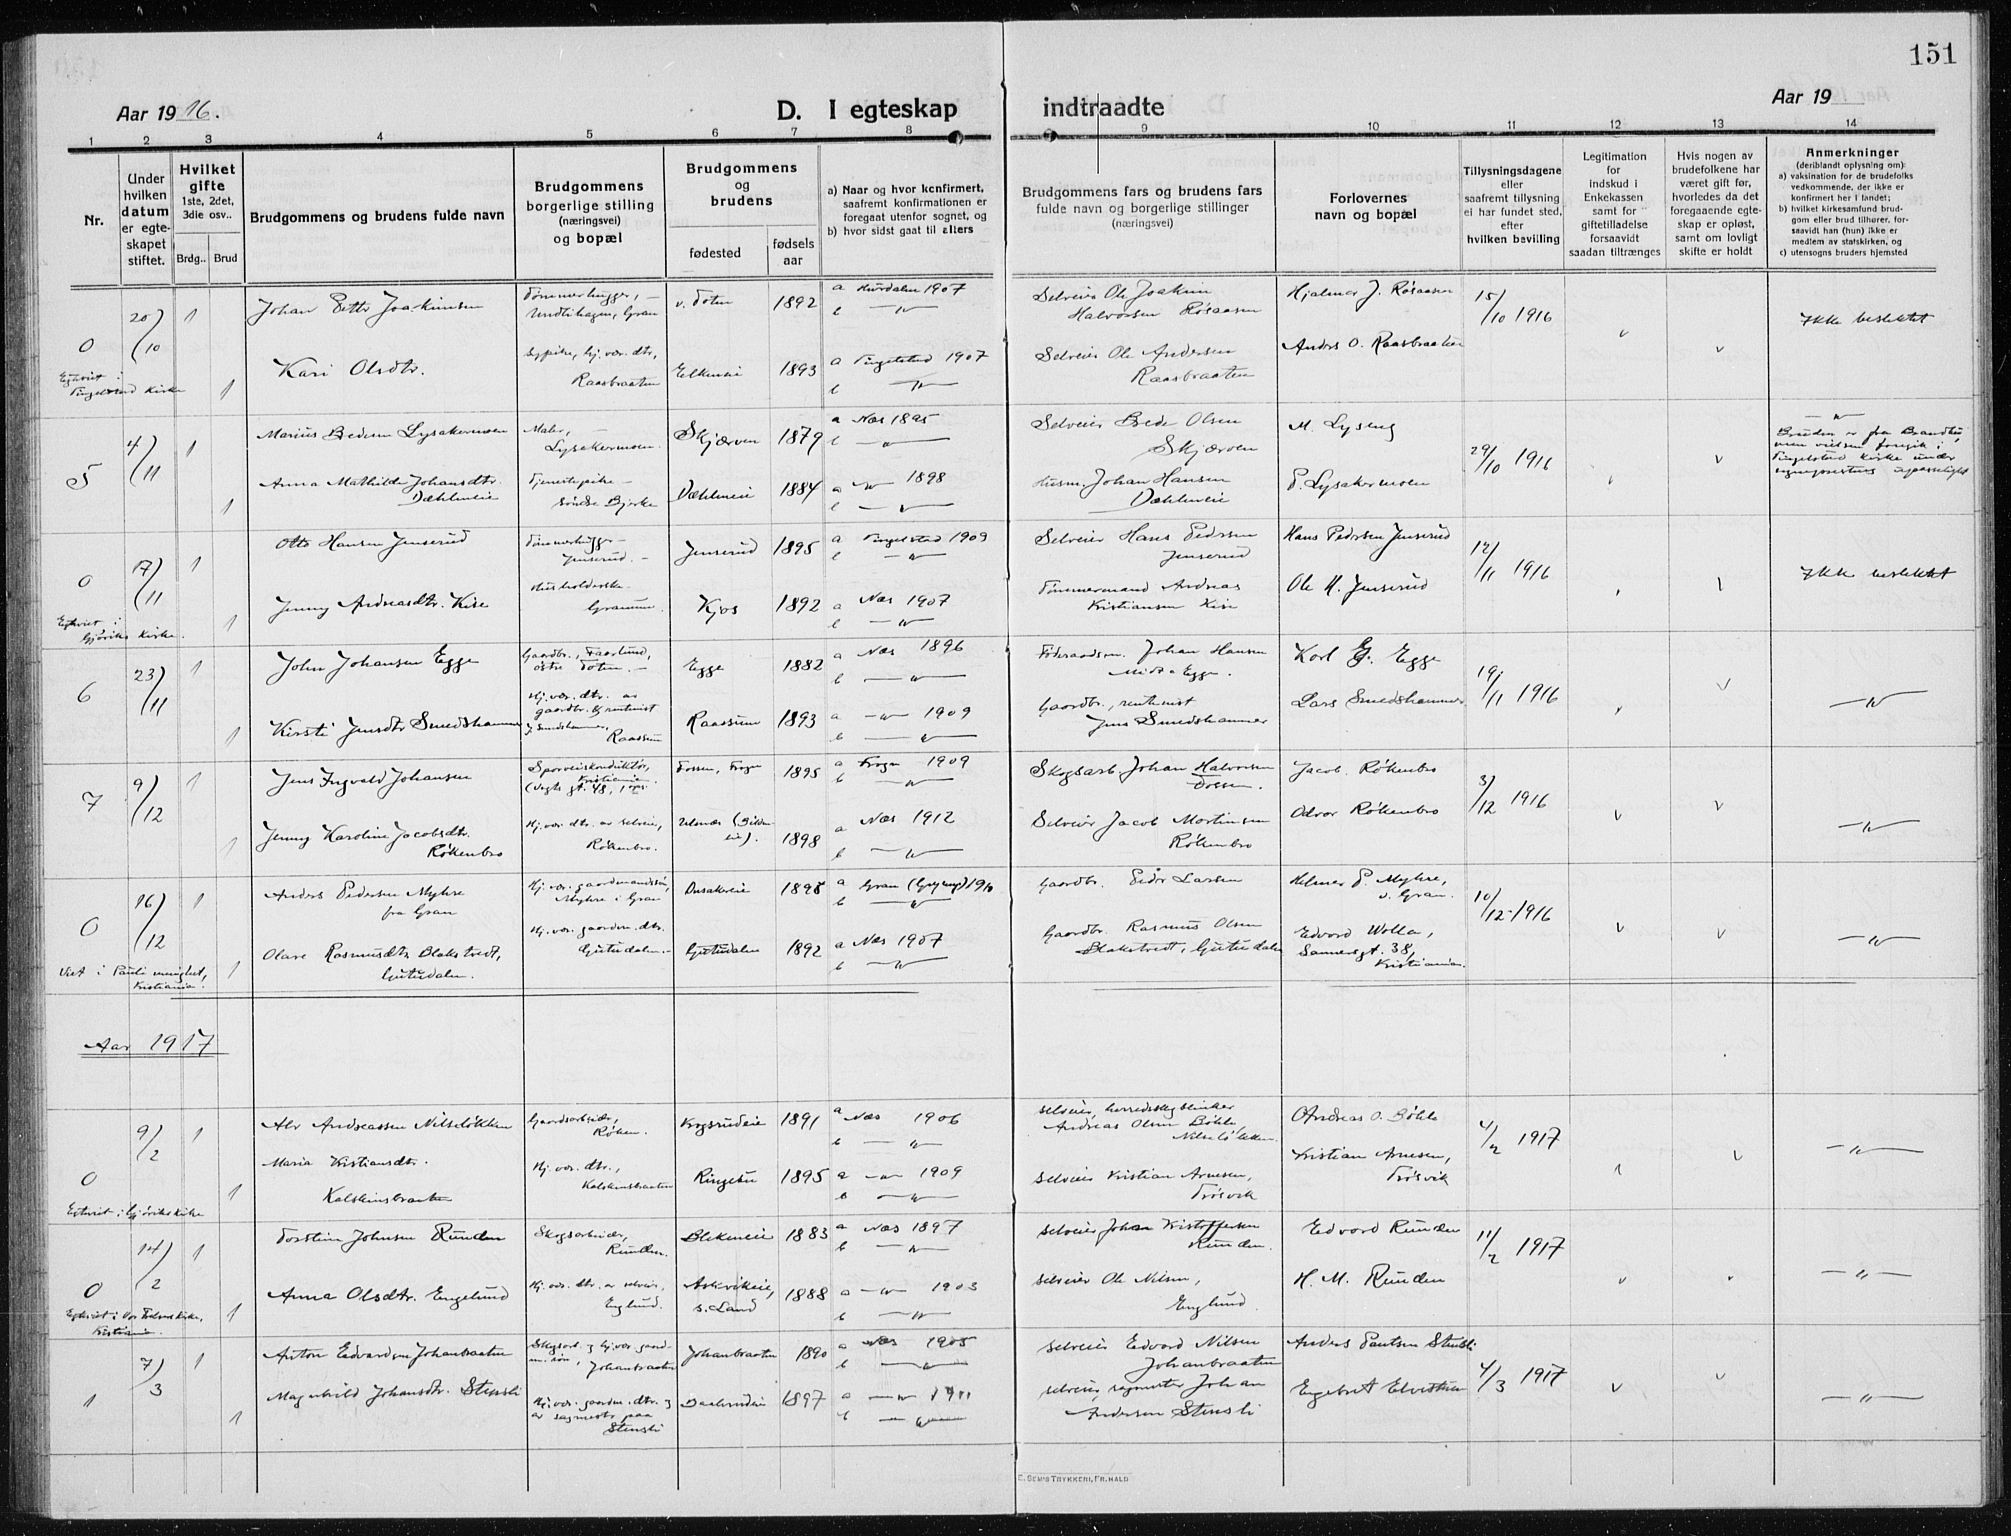 151
Aar 1916.
D. I egteskap
indtraadte
Aar 19
1 2 3 4 5 6 7 8 9 10 11 12 13 14
Nr.
Under hvilken datum er egteskapet stiftet.
Hvilket gifte 1ste, 2det, 3die osv..
Brdg.. Brud
Brudgommens og brudens fulde navn
Brudgommens borgerlige stilling (næringsvei) og bopæl
Brudgommens og brudens
fødested
fødsels aar
a) Naar og hvor konfirmert, saafremt konfirmationen er foregaat utenfor sognet, og
b) hvor sidst gaat til alters
Brudgommens fars og brudens fars fulde navn og borgerlige stillinger (næringsvei)
Forlovernes navn og bopæl
Tillysningsdagene eller saafremt tillysning ei har fundet sted, efter hvilken bevilling
Legitimation for indskud i Enkekassen samt for giftetilladelse forsaavidt saadan tiltrænges
Hvis nogen av brudefolkene har været gift før, hvorledes da det foregaaende egteskap er opløst, samt om lovligt skifte er holdt
Anmerkninger (deriblandt oplysning om):
a) vaksination for de brudefolks vedkommende, der ikke er konfirmert her i landet;
b) hvilket kirkesamfund brudgom eller brud tilhører, forsaavidt han (hun) ikke er medlem av statskirken, og
c) utensogns bruders hjemsted
0 20/10 1 Johan Petter Joakimsen Tømmerhugger, Gran v. Toten 1892 a Hurdalen 1907 b —"— Selveier Ole Joakim Halvorsen Røsaasen Hjalmar J. Røsaasen 15/10 1916 Ikke beslektet
Egteviet i Tingelstad kirke 1 Kari Olsdtr. Sypike, hj.vær. dtr., Raasbraaten 1893 a Tingelstad 1907 b —"— Selveier Ole Andersen Raasbraaten Anders O. Raasbraaten
5 4/11 1 Marius Bredesen Lysakermoen Maler, Lysakermoen Skjærven 1879 a Næs 1895 b —"— Selveier Brede Olsen Skjærven M. Lyseng 29/10 1916 —"—
Bruden er fra Brandbu, men vielsen foregik i Tingelstad kirke
1 Anna Mathilde Johansdtr. Dæhlineie Tjenestepike søndre Bjerke Dæhlineie 1884 a —"— 1898 b —"— Husm. Johan Hansen Dæhlineie P. Lysakermoen
0 17/11 1 Otto Hansen Jenserud Tømmerhugger Jenserud Jenserud 1895 a Tingelstad 1909 b —"— Selveier Hans Pedersen Jenserud Hans Pedersen Jenserud 12/11 1916 Ikke beslektet
Egteviet i Gjøviks kirke. 1 Jenny Andreasdtr. Kise Husholderske Kjos 1892 a Næs 1907 b —"— Tømmermand Andreas Kristiansen Kise Ole H. Jenserud
6 23/11 1 John Johansen Egge Gaardbr., østre Toten Egge 1882 a Næs 1896 b —"— Føderaadsm. Johan Hansen Egge. Karl G. Egge 19/11 1916 —"—
1 Kirsti Jensdtr Smedshammer Hj.vær. dtr. av gaardbr. & rentenist J. Smedshammer, Raassum Raassum 1893 a —"— 1909 b —"— Gaardbr., rentenist Jens Smedshammer Lars Smedshammer
7 9/12 1 Jens Ingvald Johansen Sporveiskonduktør, Kristiania Fossen, Frogn 1895 a Frogn 1909 b —"— Skogsarb. Johan Halvorsen Jacob Røkenbro 3/12 1916 —"—
1 Jenny Karoline Jacobsdtr. Røkenbro Hj.vær. dtr. av selveier, Røkenbro. 1898 a Næs 1912 b —"— Selveier Jacob Martinsen Røkenbro Odvar Røkenbro
0 16/12 1 Anders Pedersen Myhre fra Gran Hj.vær. gaardmandssøn, Myhre i Gran 1895 a Gran 1910 b —"— Gaardbr. Peder Larsen Helmer P. Myhre, Gran. 10/12 1916 —"—
Viet i Pauli menighet, Kristiania. 1 Olave Rasmusdtr Blakstvedt, Gjutudalen. Hj.vær. gaardm. dtr. Gjutudalen. Gjutudalen 1892 a Næs 1907 b —"— Gaardbr. Rasmus Olsen Blakstvedt, Gjutudalen Edvard Wolla, Sannergt. 38, Kristiania.
Aar 1917
0 9/2 1 Alv Andreassen Nilseløkken Gaardsarbeider, Røken. Krogsrudeie 1891 a Næs 1906 b —"— Selveier, Andreas Olsen Bøhle, Nilseløkken Andreas O. Bøhle 4/2 1917 —"—
Egteviet i Gjøviks kirke 1 Maria Kristiansdtr. Kalskinsbraaten Hj.vær. dtr., Kalskinsbraaten Ringebu 1895 a —"— 1909 b —"— Selveier Kristian Arnesen, Trøsvik Kristian Arnesen, Trøsvik
0 14/2 1 Torstein Johnsen Runden Skogsarbeider, Runden. Blekeneie 1883 a Næs 1897 b —"— Selveier Johan Kristoffersen Runden. Edvard Runden 11/2 1917 —"—
Egteviet i Vor Frelsers kirke, Kristiania 1 Anna Olsdtr. Englund Hj.vær. dtr. av selveier, Englund. Askvikeie, s. Land 1888 a —"— 1903 b —"— Selveier Ole Nilsen, Englund. H. M. Runden
1 7/3 1 Anton Edvardsen Johanbraaten Skogsarb. & hj.vær. gaardm. søn, Johanbraaten Johanbraaten 1890 a Næs 1905 b —"— Selveier Edvard Nilsen Johanbraaten Anders Paulsen Stensli 4/3 1917 —"—
1 Magnhild Johansdtr. Stensli Hj.vær. gaardm. dtr. & av sagmester paa Stensli 1897 a —"— 1911 b —"— selveier, sagmester Johan Andersen Stensli Engebret
E. SEM'S TRYKKERI, FR.HALD